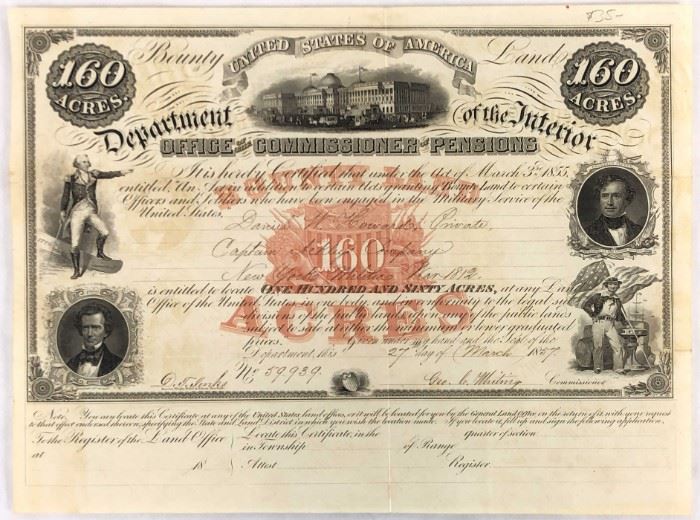 $35-
Bounty UNITED STATES OF AMERICA Land
160 ACRES. 160 ACRES.
Department of the Interior
OFFICE OF THE COMMISSIONER OF PENSIONS
It is hereby Certified that under the Act of March 3rd 1855,
entitled "An Act in addition to certain Acts granting Bounty Land to certain
Officers and Soldiers who have been engaged in the Military Service of the
United States.
Howard, Private,
Captain Company
New York Militia War 1812
160
ACRES
is entitled to locate ONE HUNDRED AND SIXTY ACRES, at any Land
Office of the United States in one body, and in conformity to the legal sub
divisions of the public lands, upon any of the public lands
subject to sale at either the minimum or lower graduated
prices. Given under my hand and the Seal of the
Department this 27 day of March 1857
No 59,939.
Geo. C. Whiting Commissioner
Note. You may locate this Certificate at any of the United States land offices, or it will be located for you by the General Land Office on the return of it, with your request
to that effect endorsed thereon, specifying the State and Land District in which you wish the location made. If you locate it, fill up and sign the following application.
To the Register of the Land Office Locate this Certificate, in the quarter of section
at in Township of Range
18 Attest Register